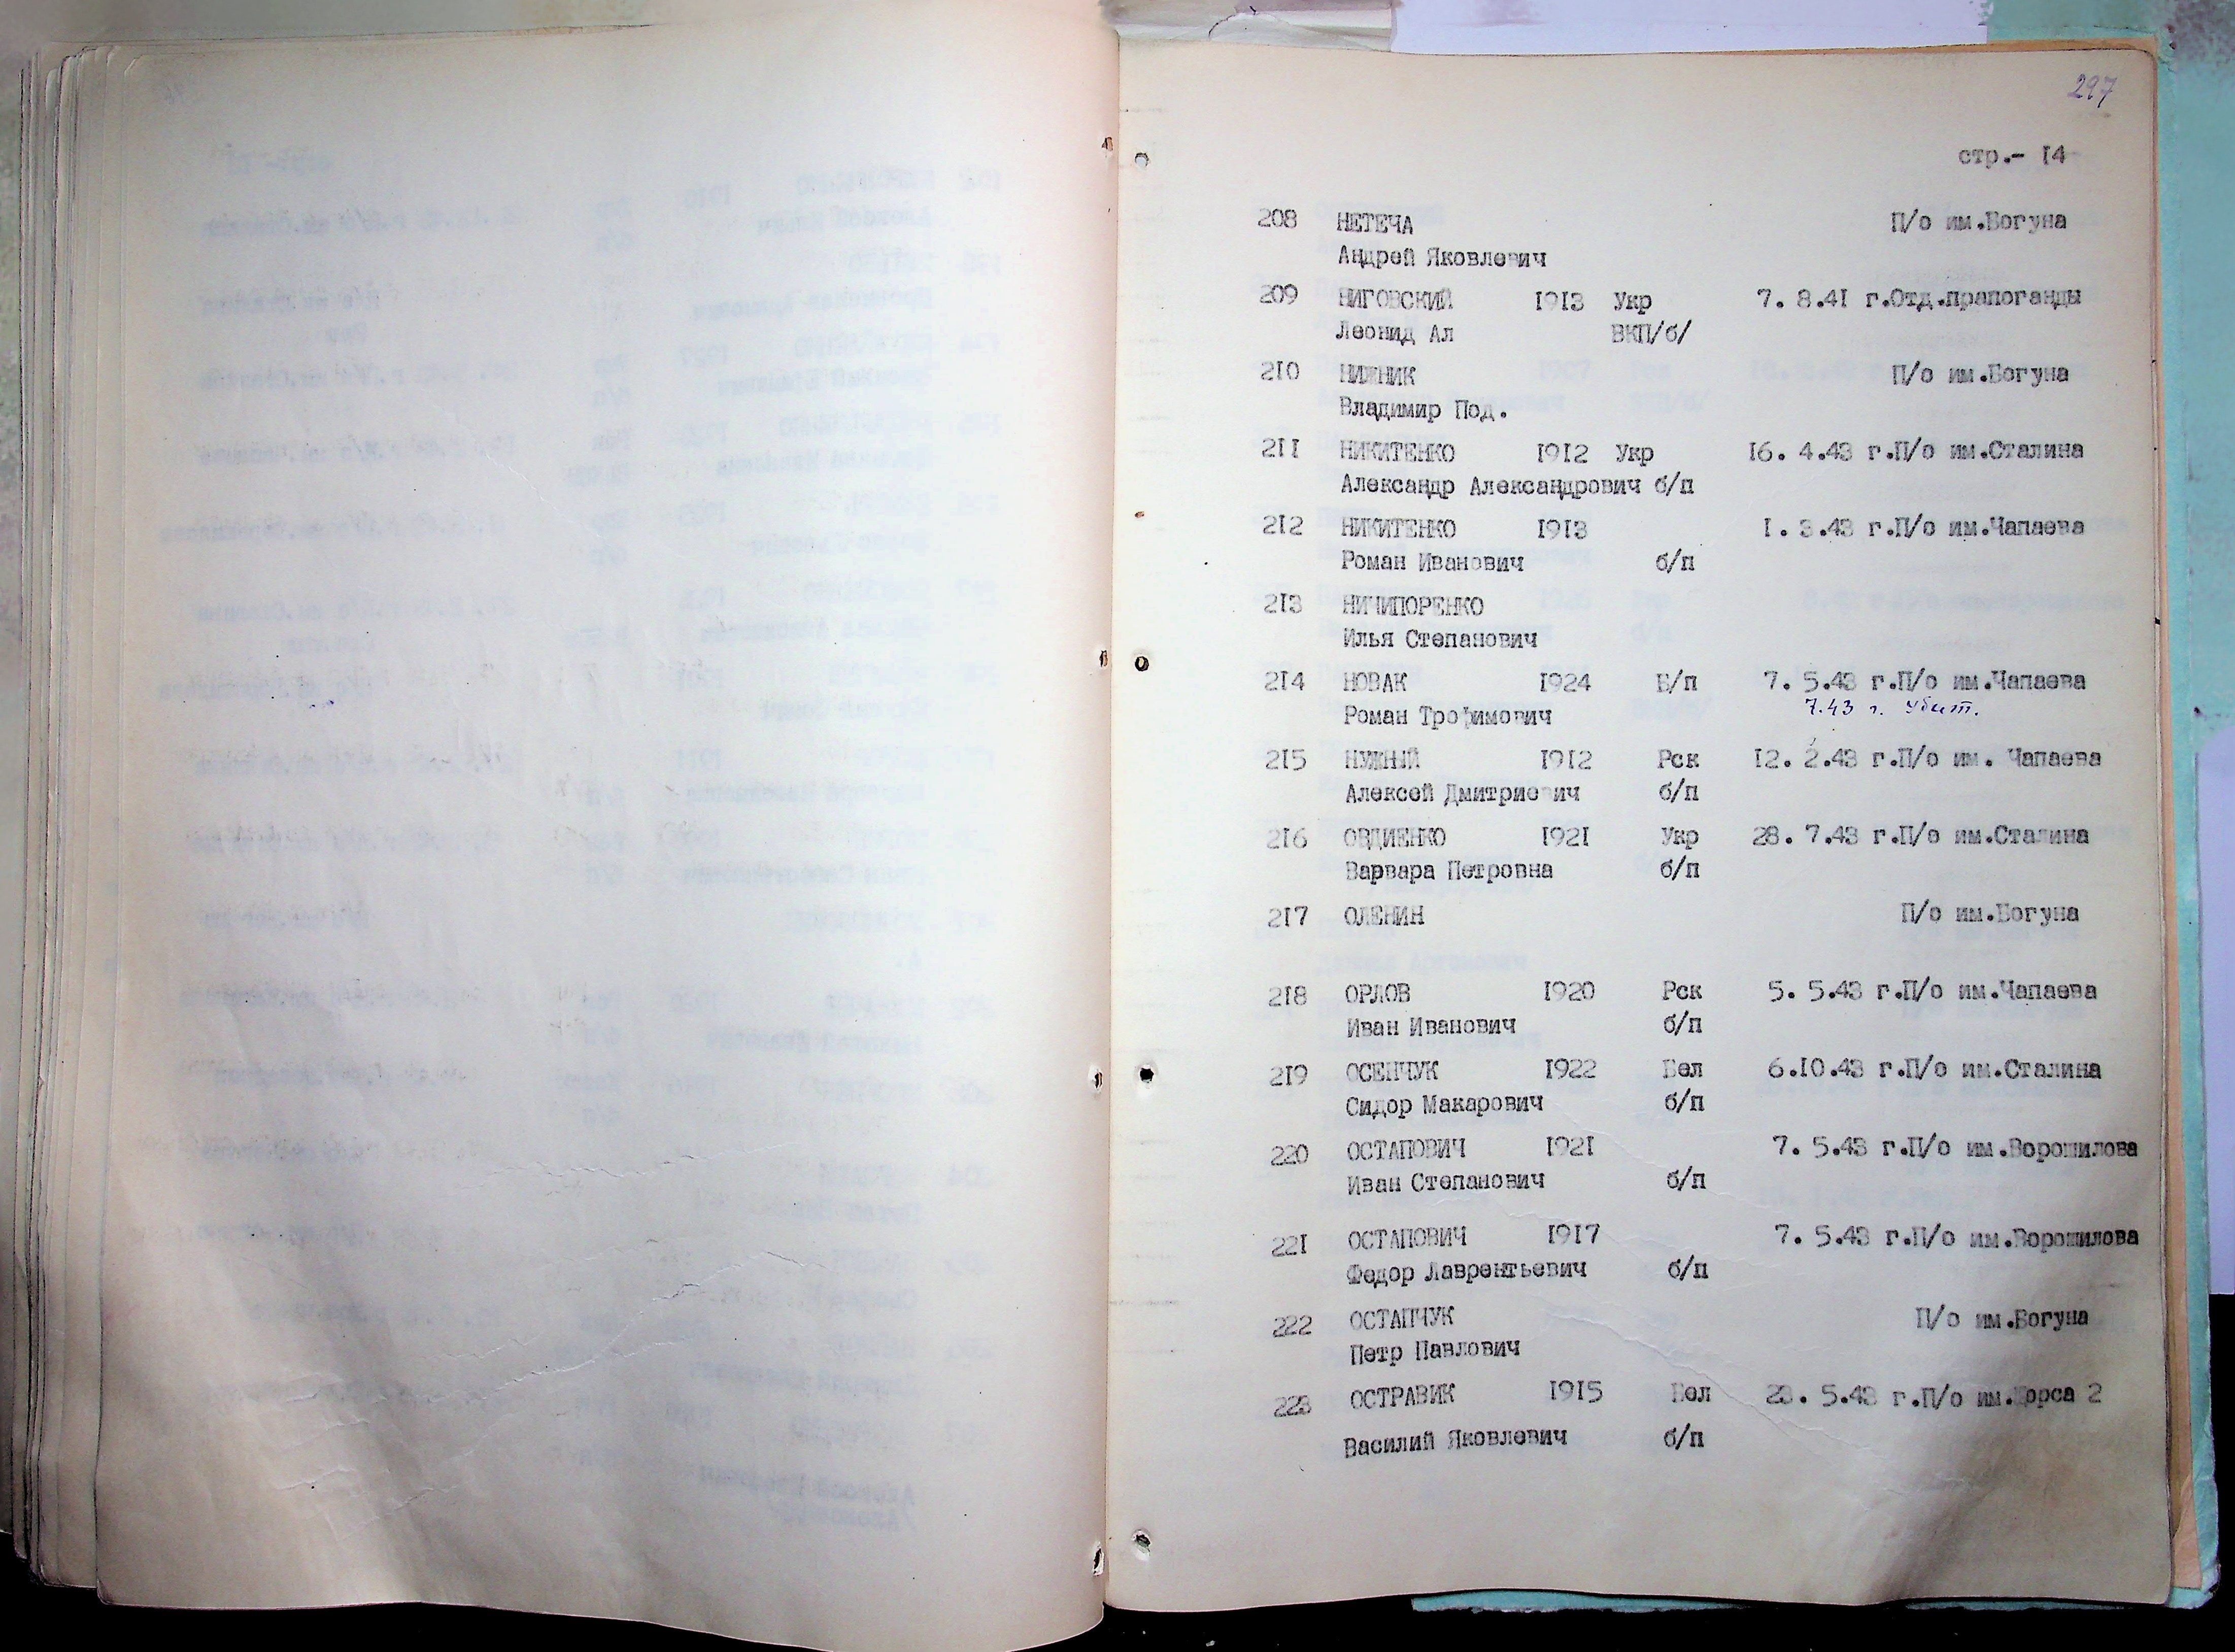 297
стр.- 14
208 НЕТЕЧА П/о им.Богуна
Андрей Яковлевич
209 НИГОВСКИЙ 1913 Укр 7. 8.41 г.Отд.прапоганды
Леонид Ал ВКП/б/
210 НИЖНИК П/о им.Богуна
Владимир Под.
211 НИКИТЕНКО 1912 Укр 16. 4.43 г.П/о им.Сталина
Александр Александрович б/п
212 НИКИТЕНКО 1913 1. 3.43 г.П/о им.Чапаева
Роман Иванович б/п
213 НИЧИПОРЕНКО
Илья Степанович
214 НОВАК 1924 Б/п 7. 5.43 г.П/о им.Чапаева
Роман Трофимович 7.43 г. Убит.
215 НУЖНЫЙ 1912 Рск 12. 2.43 г.П/о им. Чапаева
Алексей Дмитриевич б/п
216 ОВДИЕНКО 1921 Укр 28. 7.43 г.П/о им.Сталина
Варвара Петровна б/п
217 ОЛЕНИН П/о им.Богуна
218 ОРЛОВ 1920 Рск 5. 5.43 г.П/о им.Чапаева
Иван Иванович б/п
219 ОСЕНЧУК 1922 Бел 6.10.43 г.П/о им.Сталина
Сидор Макарович б/п
220 ОСТАПОВИЧ 1921 7. 5.43 г.П/о им.Ворошилова
Иван Степанович б/п
221 ОСТАПОВИЧ 1917 7. 5.43 г.П/о им.Ворошилова
Федор Лаврентьевич б/п
222 ОСТАПЧУК П/о им.Богуна
Петр Павлович
223 ОСТРАВИК 1915 Бел 23. 5.43 г.П/о им.Щорса 2
Василий Яковлевич б/п